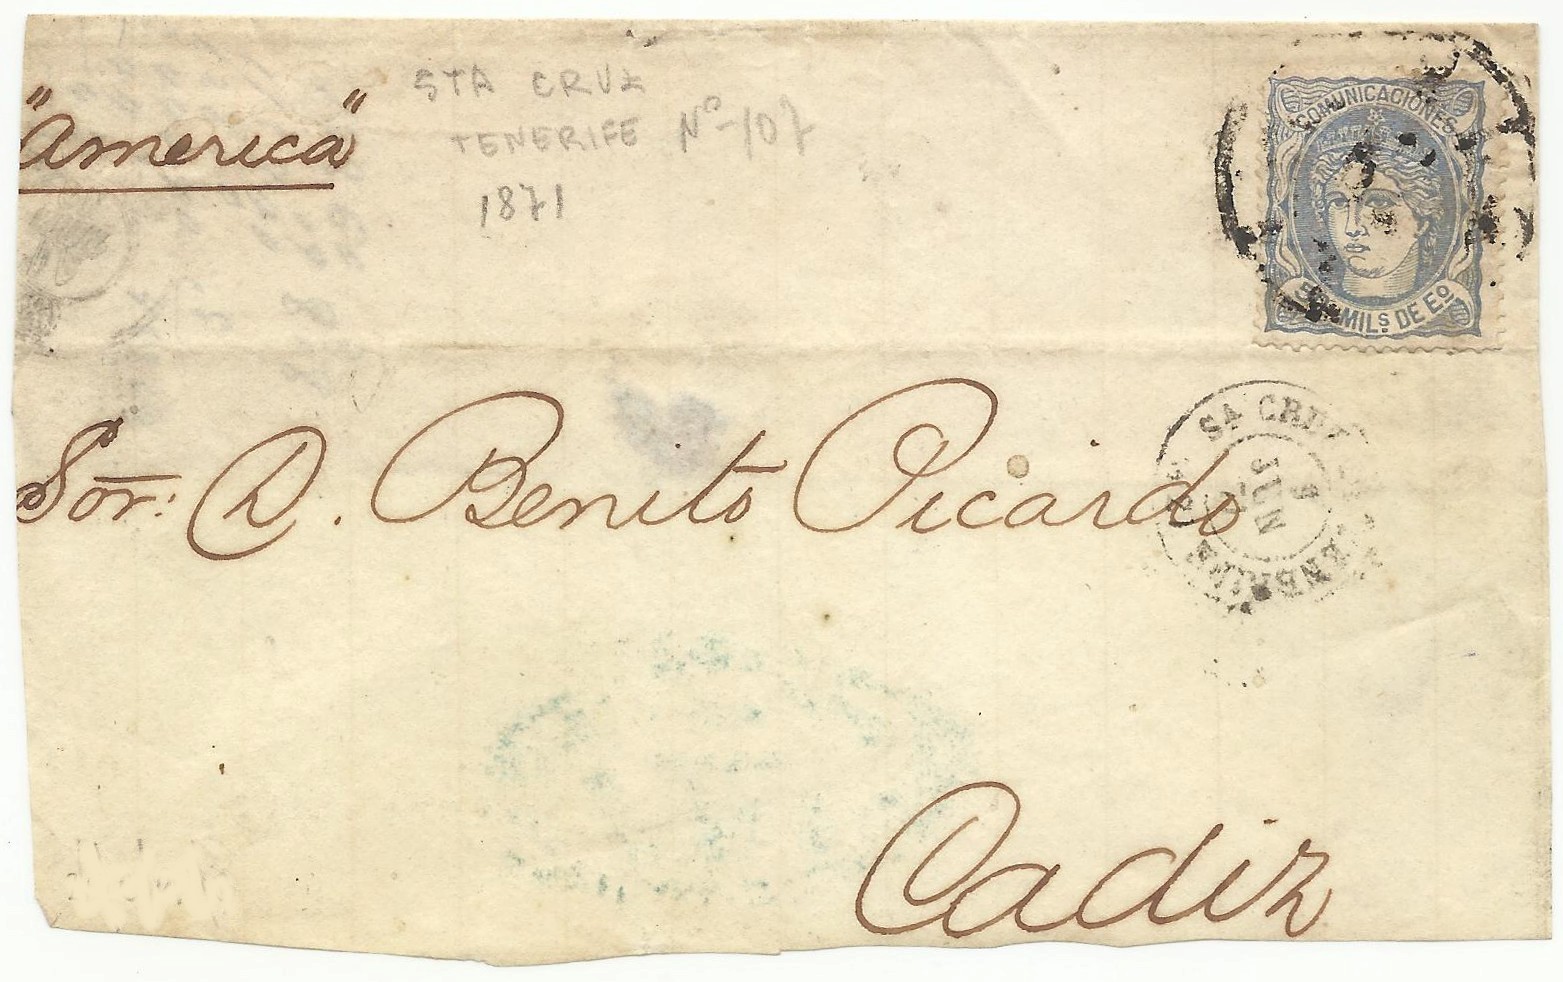 "America"
STA CRUZ
TENERIFE Nº-107
1871
COMUNICACIONES
MILS. DE Eº
Sor: D. Benito Picardo
SA CRUZ
JUN
TENERIFE
Cadiz